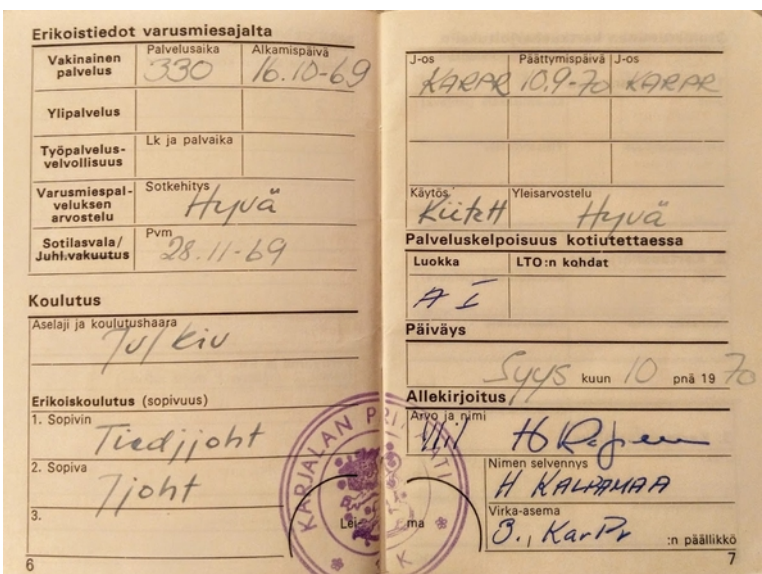 Erikoistiedot varusmiesajalta
Vakinainen palvelus
Palvelusaika
330
Alkamispäivä
16.10-69
Ylipalvelus
Työpalvelus-
velvollisuus
Lk ja palvaika
Varusmiespal-
veluksen
arvostelu
Sotkehitys
Hyvä
Sotilasvala/
Juhl.vakuutus
Pvm
28.11-69
Koulutus
Aselaji ja koulutushaara
Erikoiskoulutus (sopivuus)
1. Sopivin
Tiedjjoht
2. Sopiva
Jjoht
3.
6
J-os
KARPR
Päättymispäivä
10.9-70
J-os
KARPR
Käytös
Kiitett
Yleisarvostelu
Hyvä
Palveluskelpoisuus kotiutettaessa
Luokka
A I
LTO:n kohdat
Päiväys
Syys kuun 10 pnä 1970
Allekirjoitus
Arvo ja nimi
Nimen selvennys
H KALPAMAA
Virka-asema
3., KarPr :n päällikkö
7
KARJALAN PRIKAATI
Lei ma